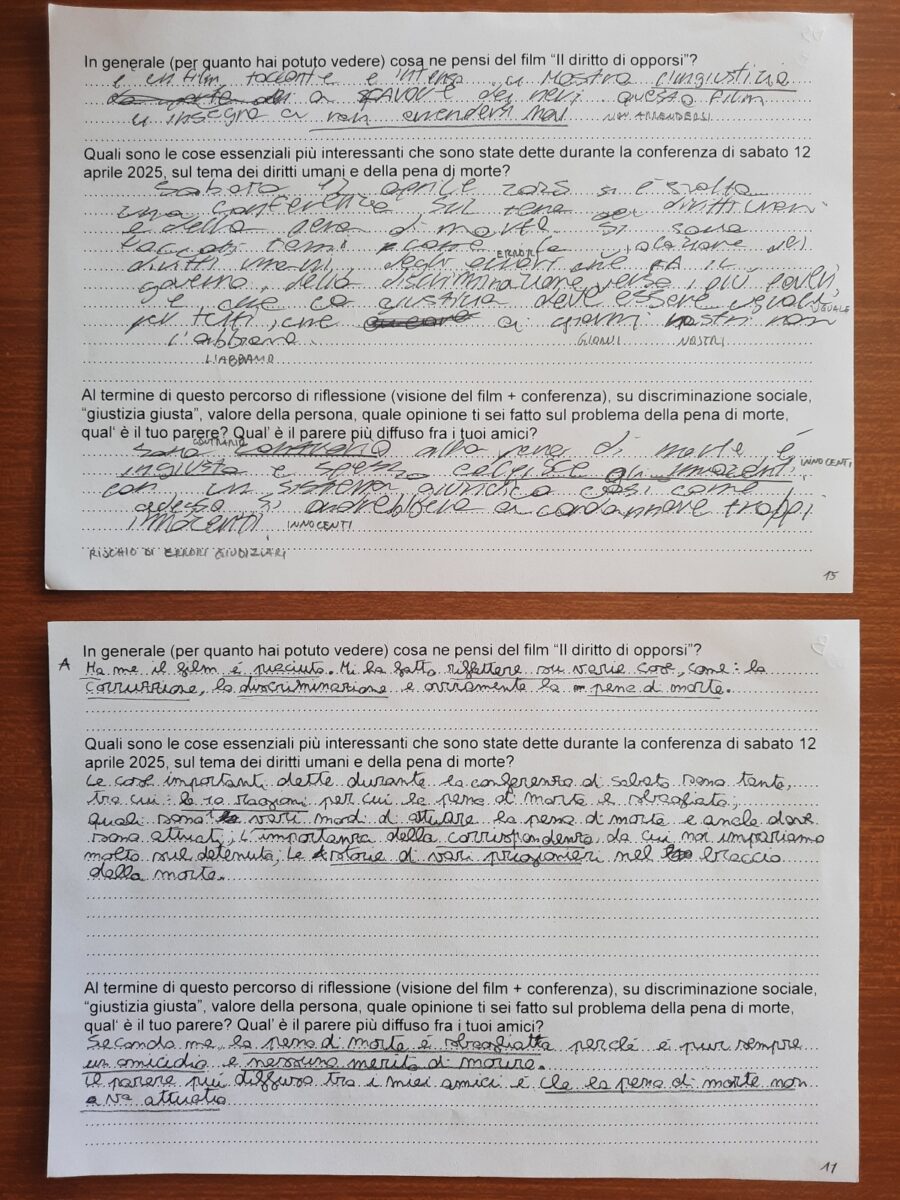 In generale (per quanto hai potuto vedere) cosa ne pensi del film “Il diritto di opporsi”?
è un film toccante e intenso ci mostra l'ingiustizia
a SFAVORE dei neri questo FILM
ci insegna a non arrendersi mai NON ARRENDERSI
Quali sono le cose essenziali più interessanti che sono state dette durante la conferenza di sabato 12
aprile 2025, sul tema dei diritti umani e della pena di morte?
Sabato 12 aprile 2025 si è svolta
una conferenza sul tema dei diritti umani
e della pena di morte. Si sono
toccati temi come la violazione dei
ERRORI
diritti umani, degli errori che FA il
governo, della discriminazione verso i più poveri,
e che la giustizia deve essere uguale
UGUALE
per tutti, che ai giorni nostri non
l'abbiamo. GIORNI NOSTRI
L'ABBIAMO
Al termine di questo percorso di riflessione (visione del film + conferenza), su discriminazione sociale,
“giustizia giusta”, valore della persona, quale opinione ti sei fatto sul problema della pena di morte,
qual‘ è il tuo parere? Qual’ è il parere più diffuso fra i tuoi amici?
CONTRARIO
sono contrario alla pena di morte è
ingiusta e spesso colpisce gli innocenti, INNOCENTI
con un sistema giuridico così come
adesso si andrebbe a condannare troppi
innocenti. INNOCENTI
RISCHIO DI ERRORI GIUDIZIARI
15
In generale (per quanto hai potuto vedere) cosa ne pensi del film “Il diritto di opporsi”?
A Ha me il film é piaciuto. Mi ha fatto riflettere su varie cose, come: la
corruzzione, la discriminazione e ovviamente la pena di morte.
Quali sono le cose essenziali più interessanti che sono state dette durante la conferenza di sabato 12
aprile 2025, sul tema dei diritti umani e della pena di morte?
Le cose importanti dette durante la conferenza di sabato sono tante,
tra cui: le 10 ragioni per cui la pena di morte é sbagliata;
quali sono i vari modi di attuare la pena di morte e anche dove
sono attuati; L'importanza della corrispondenza, da cui noi impariamo
molto sul detenuto; Le storie di vari prigionieri nel braccio
della morte.
Al termine di questo percorso di riflessione (visione del film + conferenza), su discriminazione sociale,
“giustizia giusta”, valore della persona, quale opinione ti sei fatto sul problema della pena di morte,
qual‘ è il tuo parere? Qual’ è il parere più diffuso fra i tuoi amici?
Secondo me, la pena di morte é sbagliatta perché é pur sempre
un omicidio e nessuno merita di morire.
Il parere piú diffuso tra i miei amici é che la pena di morte non
va attuata
11